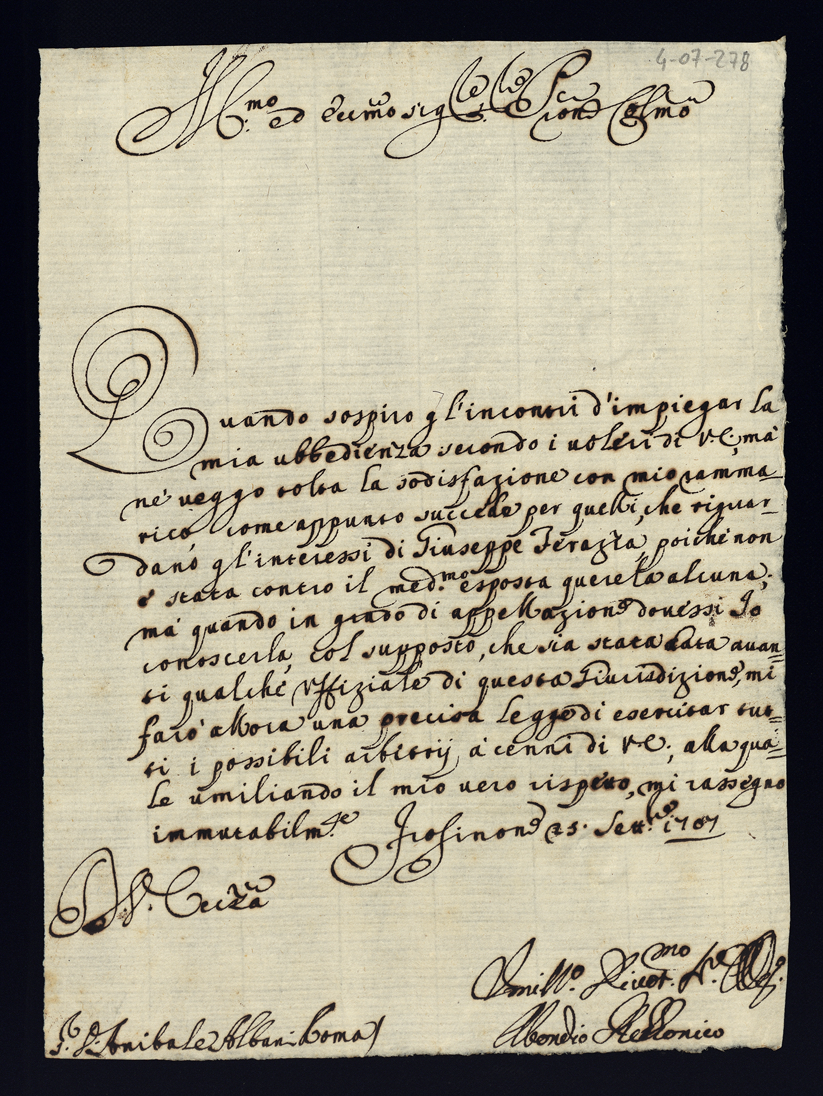 4-07-278
Ill.mo ed Ecc.mo Sig.re Sig.re Pron Colmo
Quando sospiro gl'incontri d'impiegar la
mia ubbedienza secondo i voleri di V.E., mà
ne veggo tolta la sodisfazione con mio ramma-
rico, come appunto succede per quelli, che riguar-
dano gl'interessi di Giuseppe poiche non
è stata contro il med.mo esposta querela alcuna;
mà quando in grado di appellazione dovessi Io
conoscerla, col supposto, che sia stata data avan-
ti qualche Uffiziale di questa Giurisdizione, mi
farò allora una precisa legge di esercitar tut-
ti i possibili arbitrij à cenni di V.E.; alla qua-
le umiliando il mio vero rispetto, mi rassegno
immutabilm.te Frosinone 25. Sett.re 1707
D. V. Eccza
Umill.o Divot.mo
Abondio Rezzonico
Anibale Albani Roma